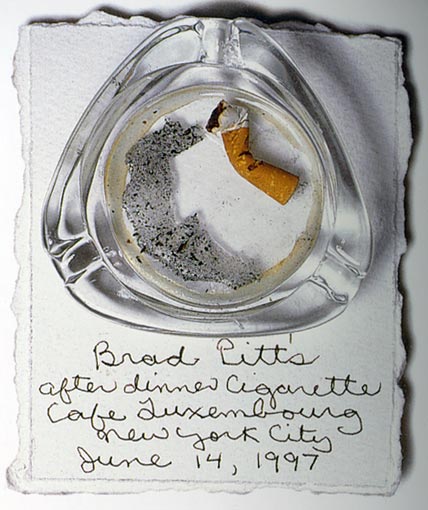 Brad Pitt's
after dinner Cigarette
Cafe Luxembourg
New York City
June 14, 1997